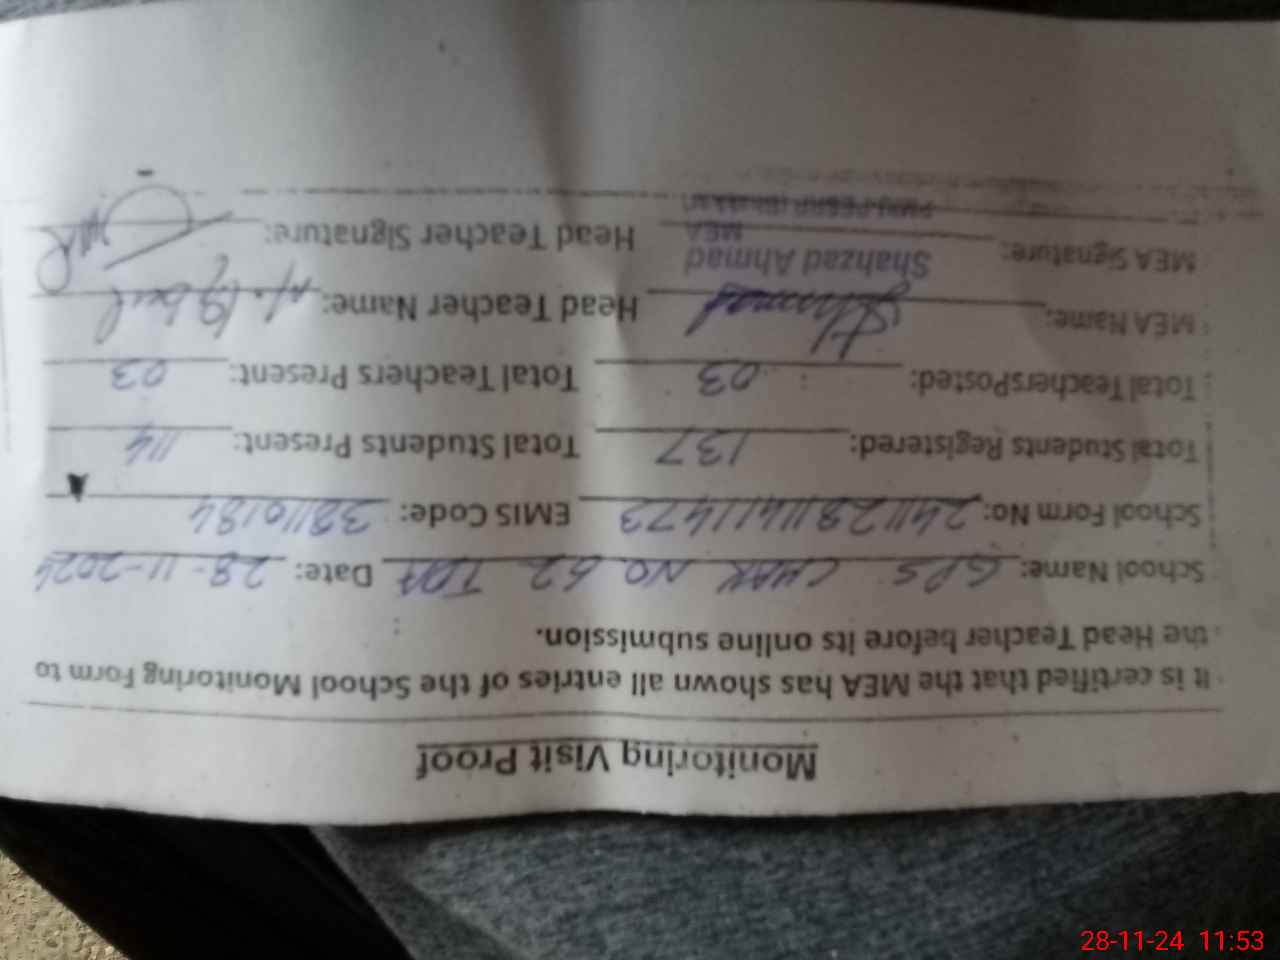 Monitoring Visit Proof
It is certified that the MEA has shown all entries of the School Monitoring Form to
the Head Teacher before its online submission.
School Name: GPS CHAK NO. 62 TDA Date: 28-11-2024
School Form No: 241128114111473 EMIS Code: 38110184
Total Students Registered: 137 Total Students Present: 114
Total TeachersPosted: 03 Total Teachers Present: 03
MEA Name: Head Teacher Name: M. Iqbal
MEA Signature: Head Teacher Signature:
Shahzad Ahmad
MEA
28-11-24 11:53